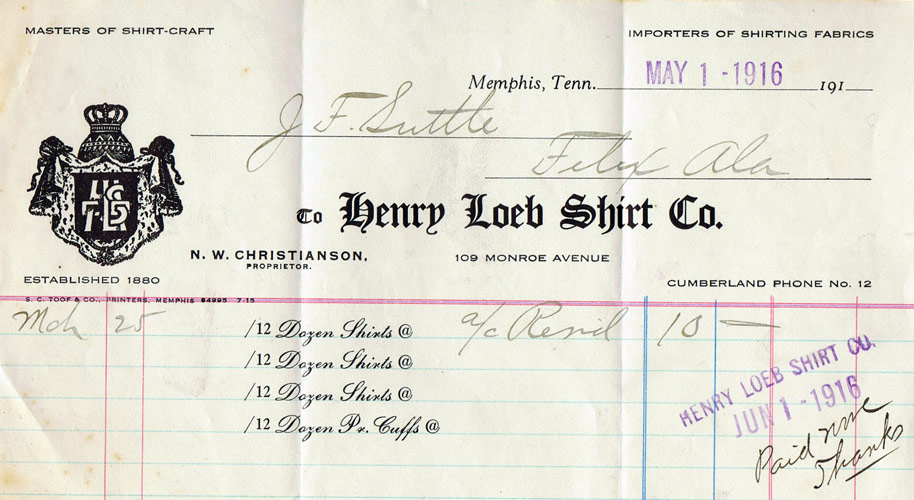 MASTERS OF SHIRT-CRAFT
IMPORTERS OF SHIRTING FABRICS
Memphis, Tenn. MAY 1 - 1916 191
J. F. Suttle
Felix Ala
To Henry Loeb Shirt Co.
N. W. CHRISTIANSON,
PROPRIETOR.
109 MONROE AVENUE
ESTABLISHED 1880
CUMBERLAND PHONE NO. 12
S. C. TOOF & CO., PRINTERS, MEMPHIS 84995 7-15
Mch 25 /12 Dozen Shirts @ a/c Rend 10 —
/12 Dozen Shirts @
/12 Dozen Shirts @
/12 Dozen Pr. Cuffs @
HENRY LOEB SHIRT CO.
JUN 1 - 1916
Paid
Thanks